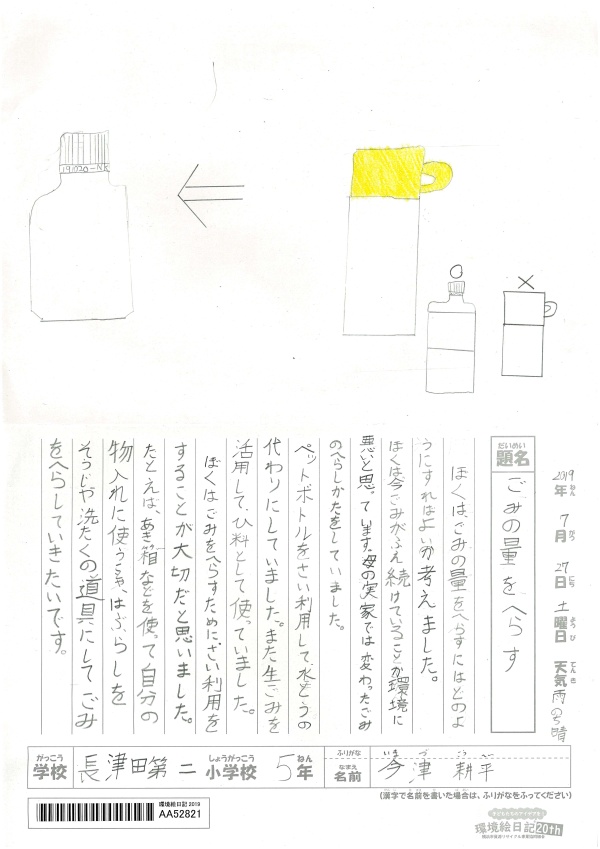 191020-NK
○
×
2019年 7月 27日 土曜日 天気 雨のち晴
ねん がつ にち ようび てんき
だいめい
題名
ごみの量をへらす
ぼくは、ごみの量をへらすにはどのよ
うにすればよいか考えました。
ぼくは今ごみがふえ続けていることが環境に
悪いと思っています。母の実家では変わったごみ
のへらしかたをしていました。
ペットボトルをさい利用して水とうの
代わりにしていました。また生ごみを
活用して、ひ料として使っていました。
ぼくはごみをへらすためにさい利用を
することが大切だと思いました。
たとえば、あき箱などを使って自分の
物入れに使う事、はぶらしを
そうじや洗たくの道具にしてごみ
をへらしていきたいです。
がっこう しょうがっこう ねん
学校 長津田第二 小学校 5年
ふりがな いま づ こう へい
なまえ
名前 今津 耕平
(漢字で名前を書いた場合は、ふりがなをふってください)
環境絵日記 2019
AA52821
環境絵日記 20th